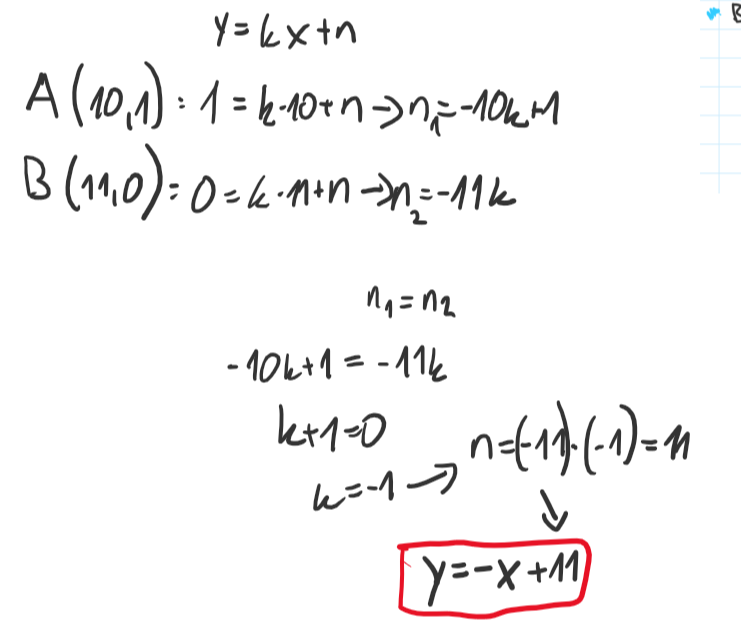 y=kx+n
A(10,1): 1=k·10+n→n₁=-10k+1
B(11,0): 0=k·11+n→n₂=-11k
n₁=n₂
-10k+1=-11k
k+1=0
k=-1→ n=(-11)·(-1)=11
↓
y=-x+11